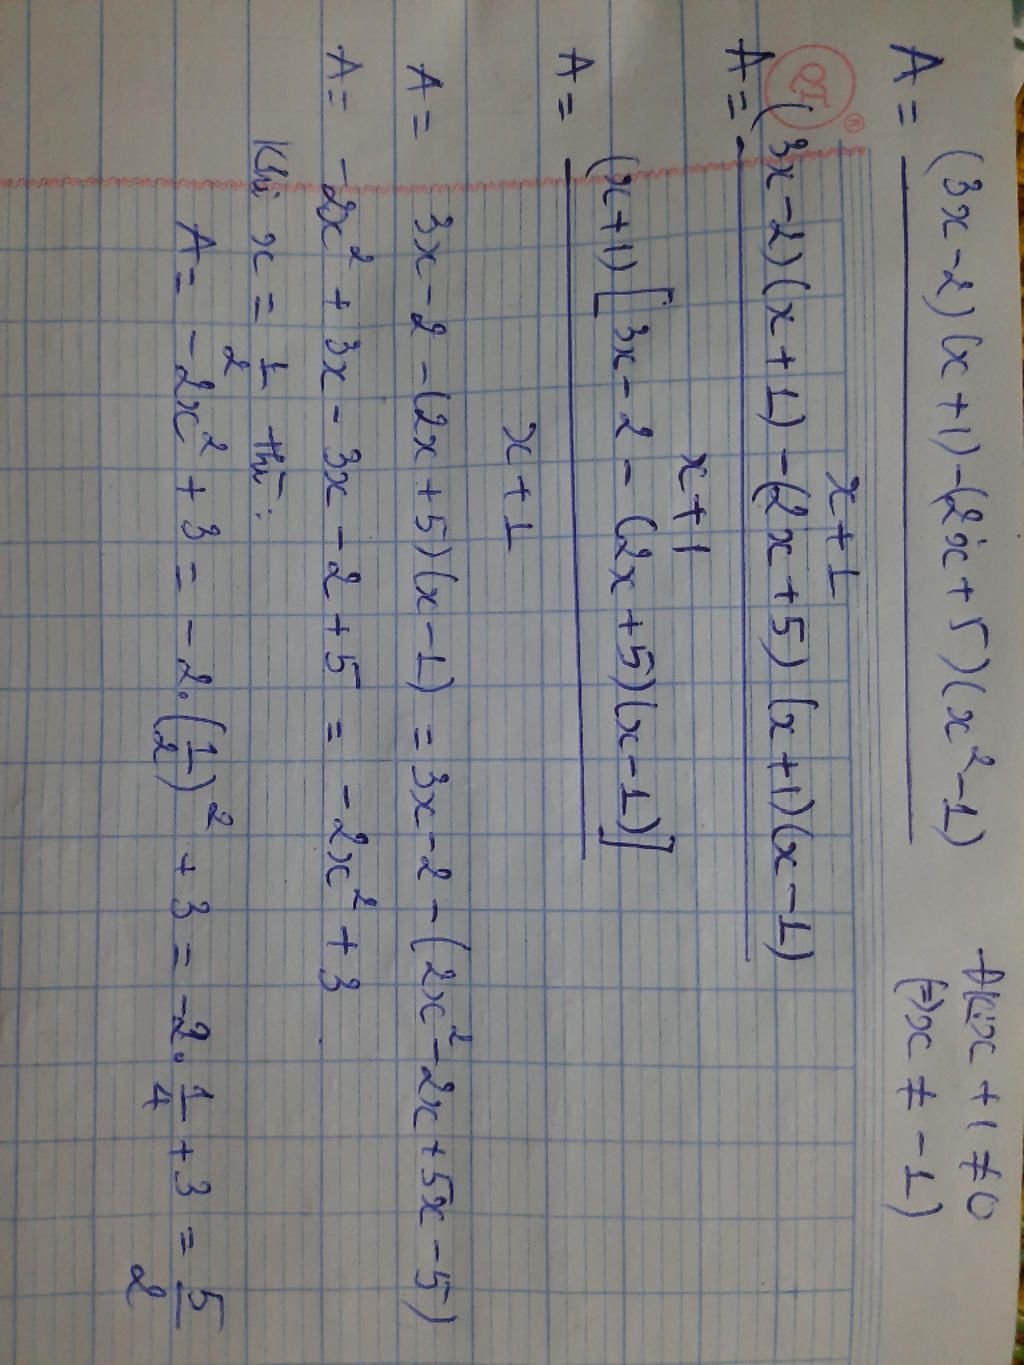 A = (3x-2)(x+1)-(2x+5)(x²-1) / x+1
ĐK: x+1≠0
(=) x ≠ -1)
A = (3x-2)(x+1)-(2x+5)(x+1)(x-1) / x+1
A = (x+1)[3x-2-(2x+5)(x-1)] / x+1
A = 3x-2-(2x+5)(x-1) = 3x-2-(2x²-2x+5x-5)
A = -2x²+3x-3x-2+5 = -2x²+3
Khi x = 1/2 thì:
A = -2x²+3 = -2.(1/2)²+3 = -2.1/4+3 = 5/2